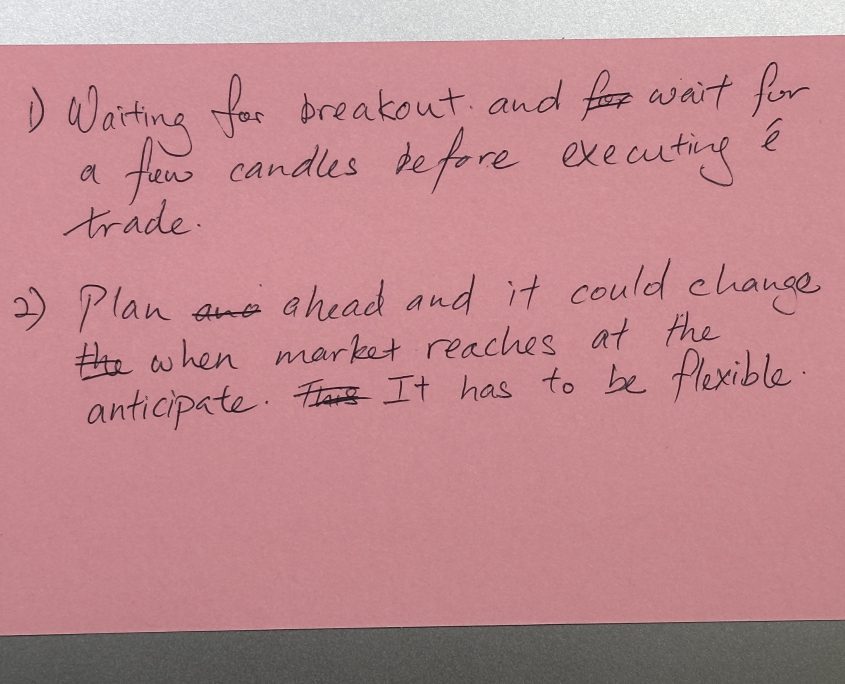 1) Waiting for breakout. and for wait for
a few candles before executing é
trade.
2) Plan and ahead and it could change
the when market reaches at the
anticipate. This It has to be flexible.